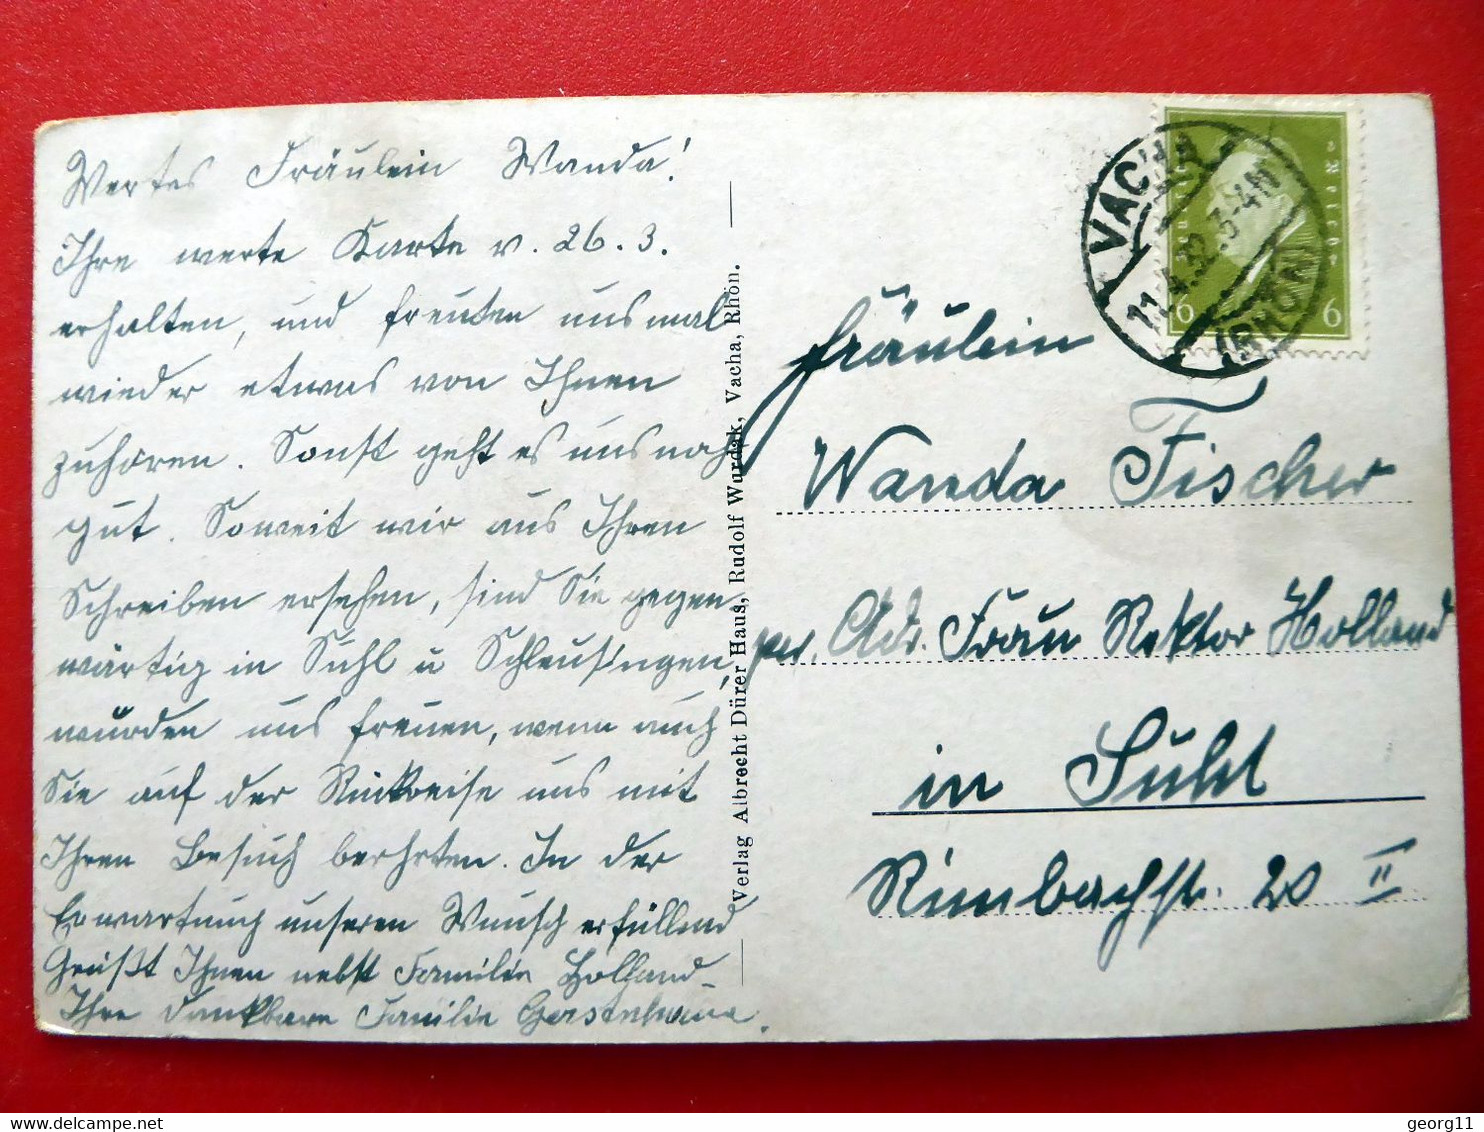 Wertes Fräulein Wanda!
Ihre werte Karte v. 26.3.
erhalten, und freuten uns mal
wieder etwas von Ihnen
zuhören. Sonst geht es uns noch
gut. Soweit wir aus Ihren
Schreiben ersehen, sind Sie gegen
wärtig in Suhl u Schleusingen,
würden uns freuen, wenn auch
Sie auf der Rückreise uns mit
Ihren Besuch berhrten. In der
Erwartung unseren Wunsch erfüllend
Grüßt Ihnen nebst Familie Holland
Ihre dankbare Familie
Verlag Albrecht Dürer Haus, Rudolf Wurdak, Vacha, Rhön.
VACHA
11.4.32. 3-4N
(RHÖN)
Deutsches Reich
6 6
Fräulein
Wanda Fischer
per. Adr. Frau Rektor Holland
in Suhl
Rimbachstr. 20 II
georg11